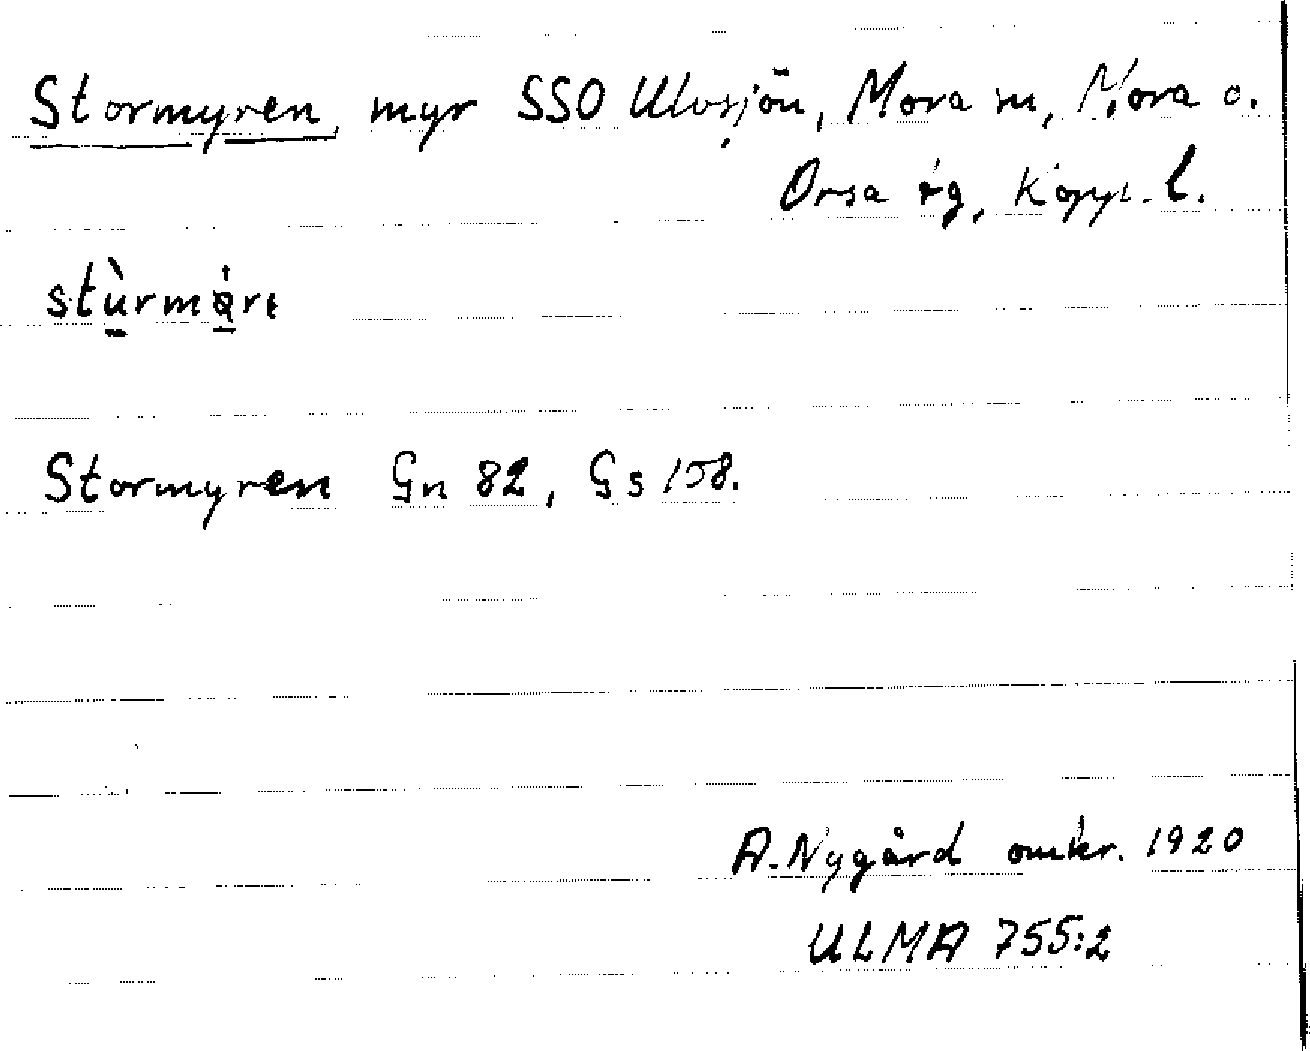 Stormyren, myr SSO Ulvsjön, Mora sn, Mora o.
Orsa tg, Kopp. l.
Stormyren Gn 82, Gs 158.
A. Nygård omkr. 1920
ULMA 755:2